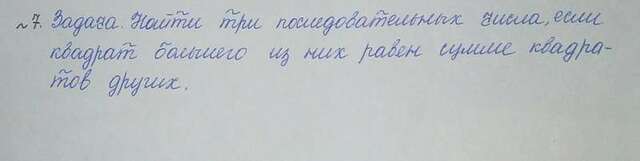 ~7. Задача. Найти три последовательных числа, если
квадрат большего из них равен сумме квадра-
тов других.